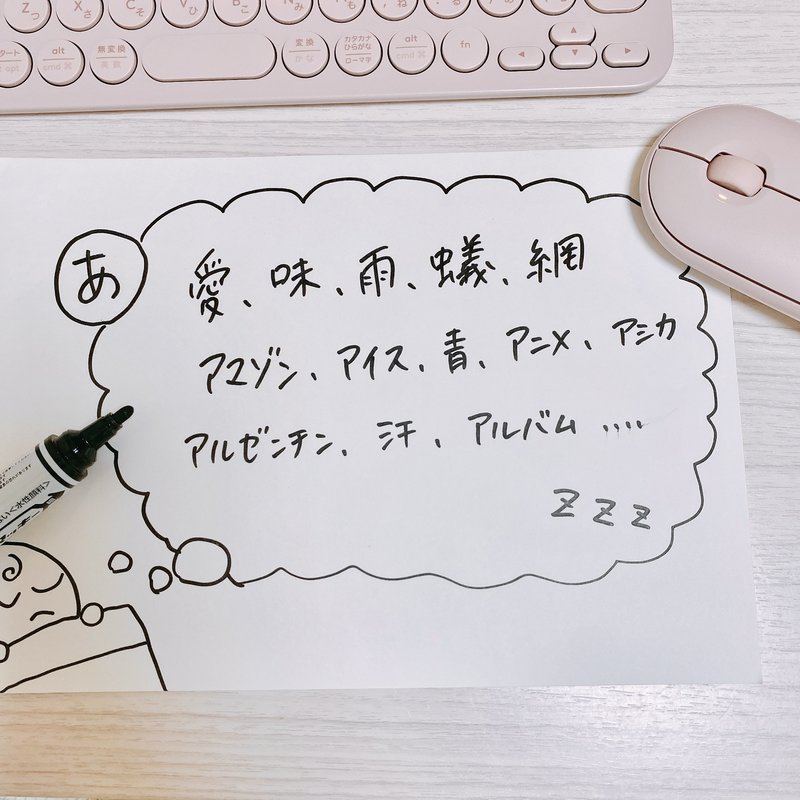 Z っ
X さ
C そ
alt
cmd ⌘
無変換
英数
変換
かな
カタカナ
ひらがな
ローマ字
alt
cmd ⌘
fn
あ
愛、味、雨、蟻、網
アマゾン、アイス、青、アニメ、アシカ
アルゼンチン、汗、アルバム ....
z z z